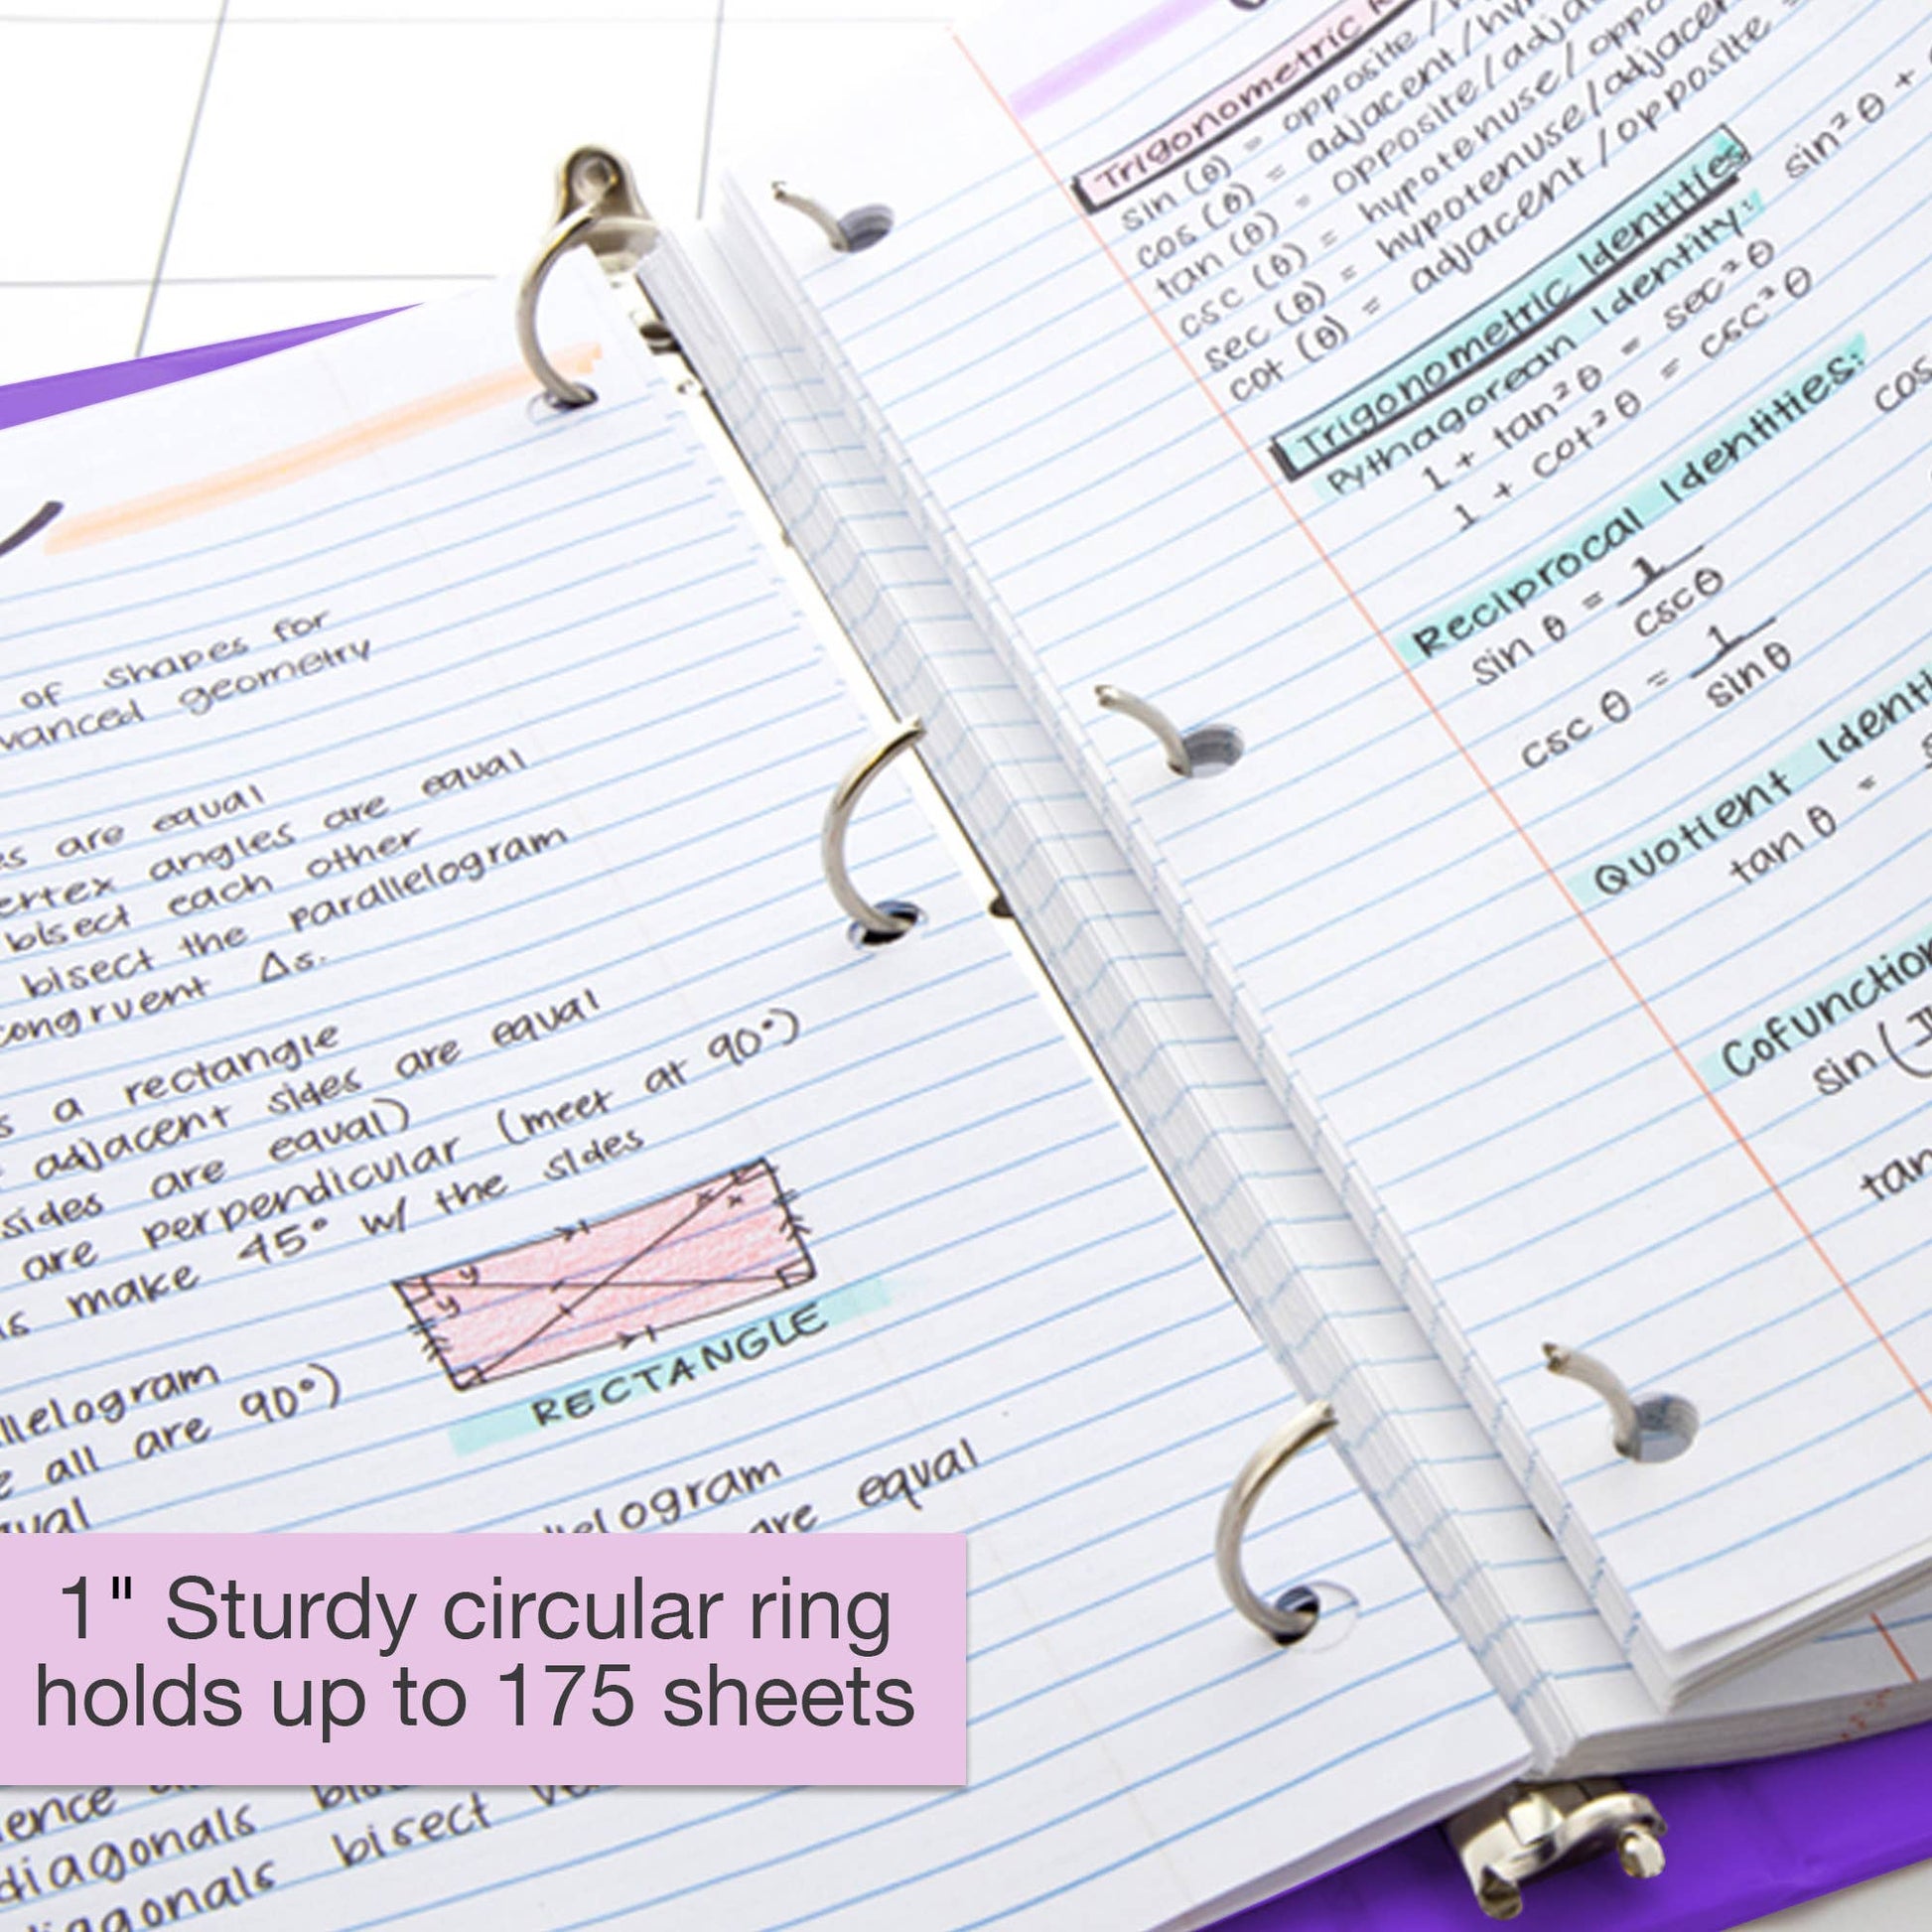 of shapes for
geometry
are equal
angles are equal
bisect each other
bisect the parallelogram
congruent Δs.
a rectangle
adjacent sides are equal
sides are equal)
are perpendicular (meet at 90°)
make 45° w/ the sides
y
y
x
x
RECTANGLE
all are 90°)
are equal
1" Sturdy circular ring
holds up to 175 sheets
diagonals
bisect
Trigonometric
sin (θ) = opposite /
cos (θ) = adjacent / hy
tan (θ) = opposite / adja
csc (θ) = hypotenuse / oppo
sec (θ) = hypotenuse / adjacen
cot (θ) = adjacent / opposite
Trigonometric Identities
Pythagorean Identity: sin²θ +
1 + tan²θ = sec²θ
1 + cot²θ = csc²θ
Reciprocal Identities:
sin θ = 1
cscθ
cos
csc θ = 1
sinθ
Quotient Identi
tan θ =
Cofunction
sin (
tan